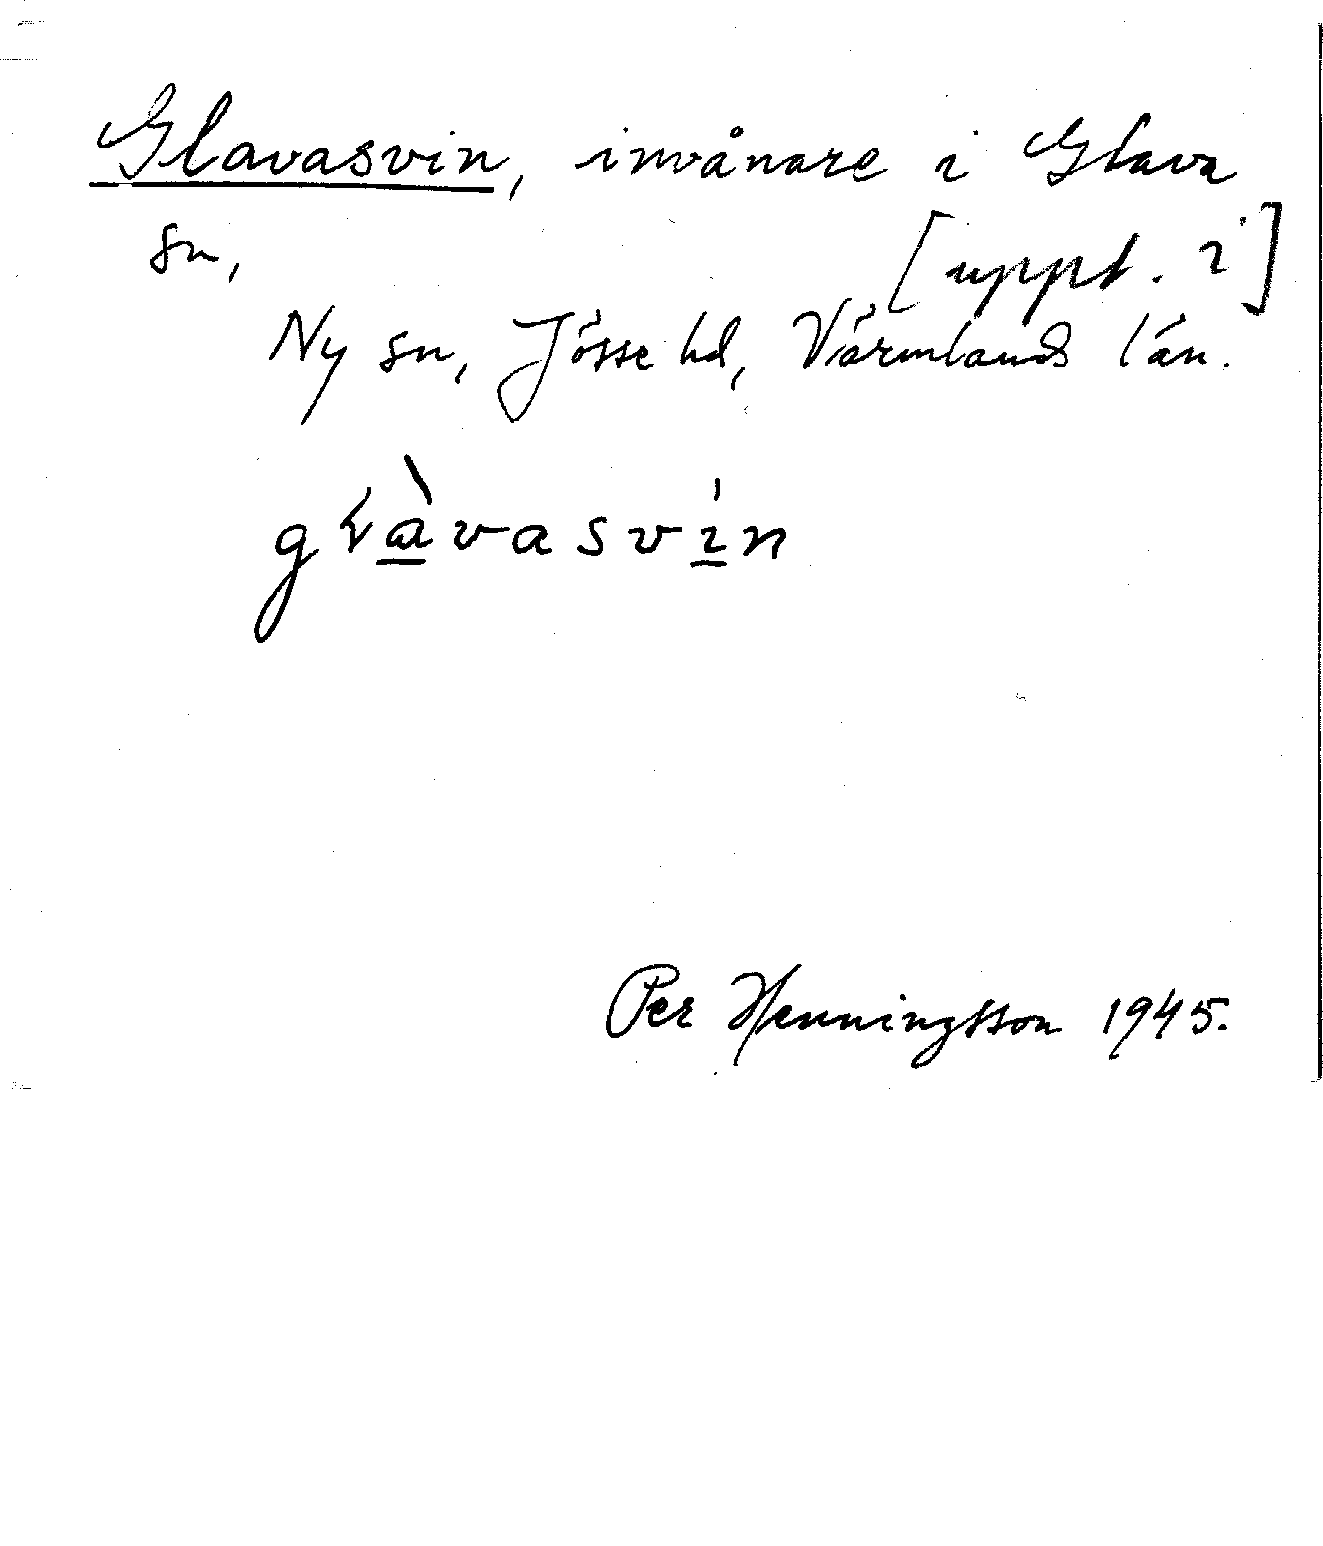 Glavasvin, invånare i Glava
sn, [uppt. i]
Ny sn, Jösse hd, Värmlands län.
gɽàvasvin
Per Henningsson 1945.